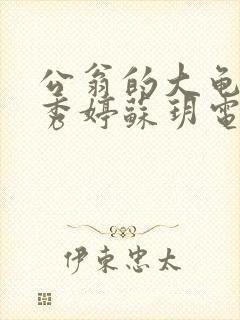 公翁的大龟
秀婷蘇玥電
伊東忠太